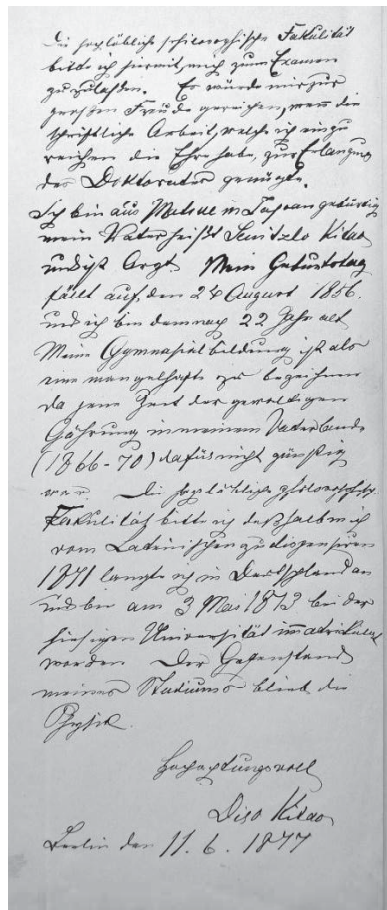 Die hochlöbliche philosophische Fakulität
bitte ich hiermit, mich zum Examen
zuzulassen. Es würde mir zur
grossen Freude gereichen, wenn die
schriftliche Arbeit, welche ich einzu
reichen die Ehre habe, zur Erlangung
des Doktorates genügte.
Ich bin aus Matsue in Japan gebürtig
mein Vater heißt Kitao
und ist Arzt. Mein Geburtstag
fällt auf den 24 August 1856.
und ich bin demnach 22 Jahr alt
Meine Gymnasialbildung ist als
eine mangelhafte zu bezeichnen
da jene Zeit der gewaltigen
Gährung in meinem Vaterlande
(1866-70) dafür nicht günstig
war. Die hochlöbliche philosophische
Fakulität bitte ich deßhalb mich
vom Lateinischen zu dispensiren
1871 langte ich in Deutschland an
und bin am 3 Mai 1873 bei der
hiesigen Universität immatrikulirt
worden. Der Gegenstand
meines Studiums blieb die
Physik.
Hochachtungsvoll
Diro Kitao
Berlin den 11. 6. 1877